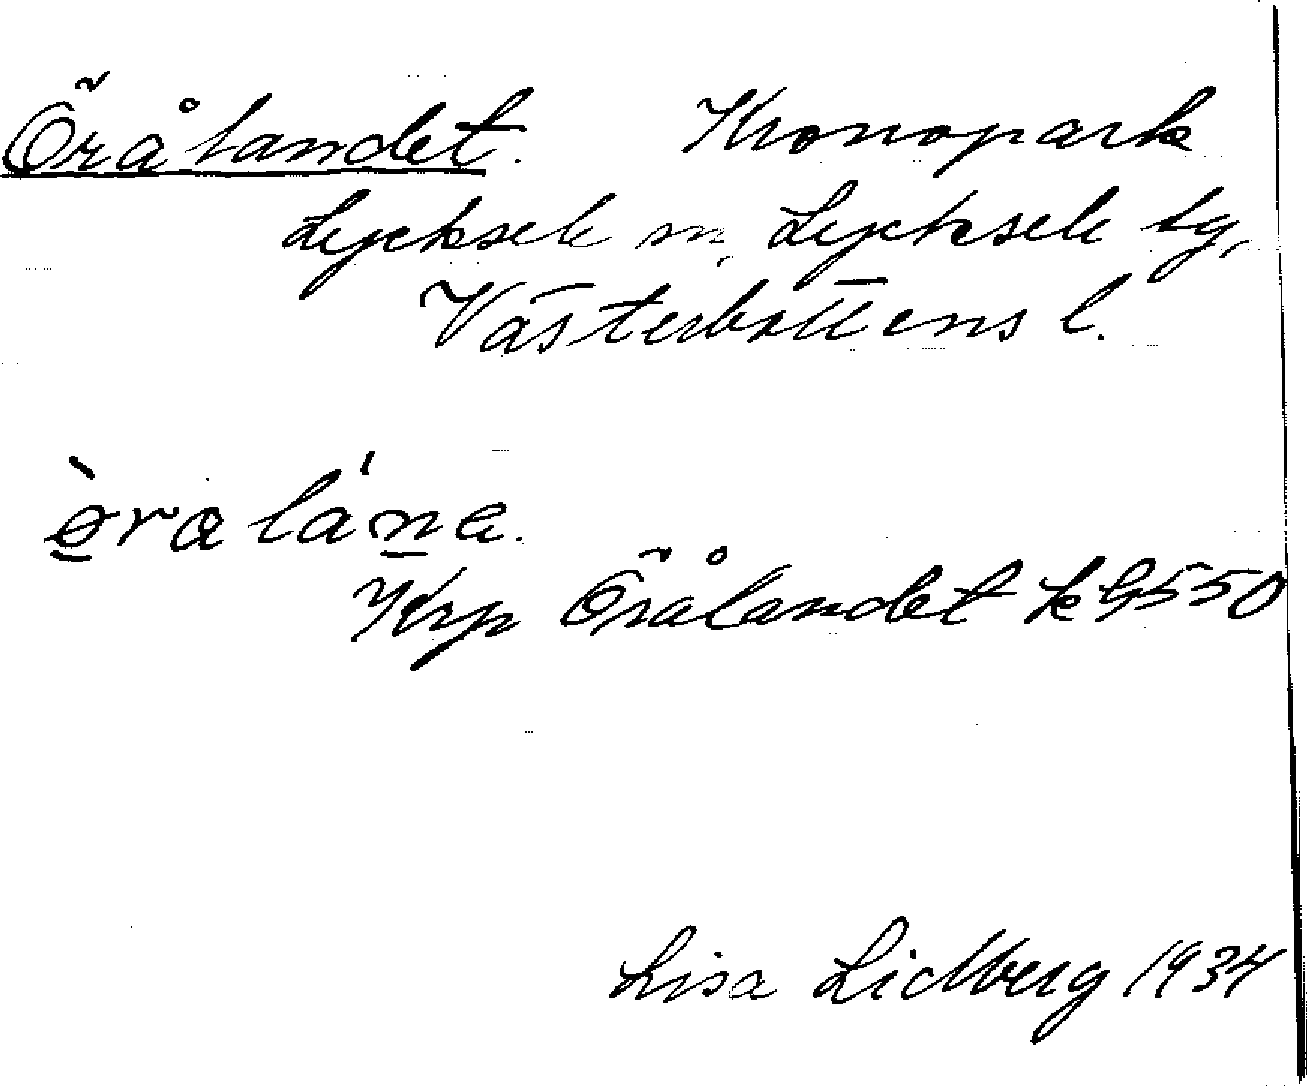 Öråhandet. Kronopark
Lycksele sn, Lycksele tg,
Västerbottens l.
Krp Örålandet k G550
Lisa Lidberg 1934